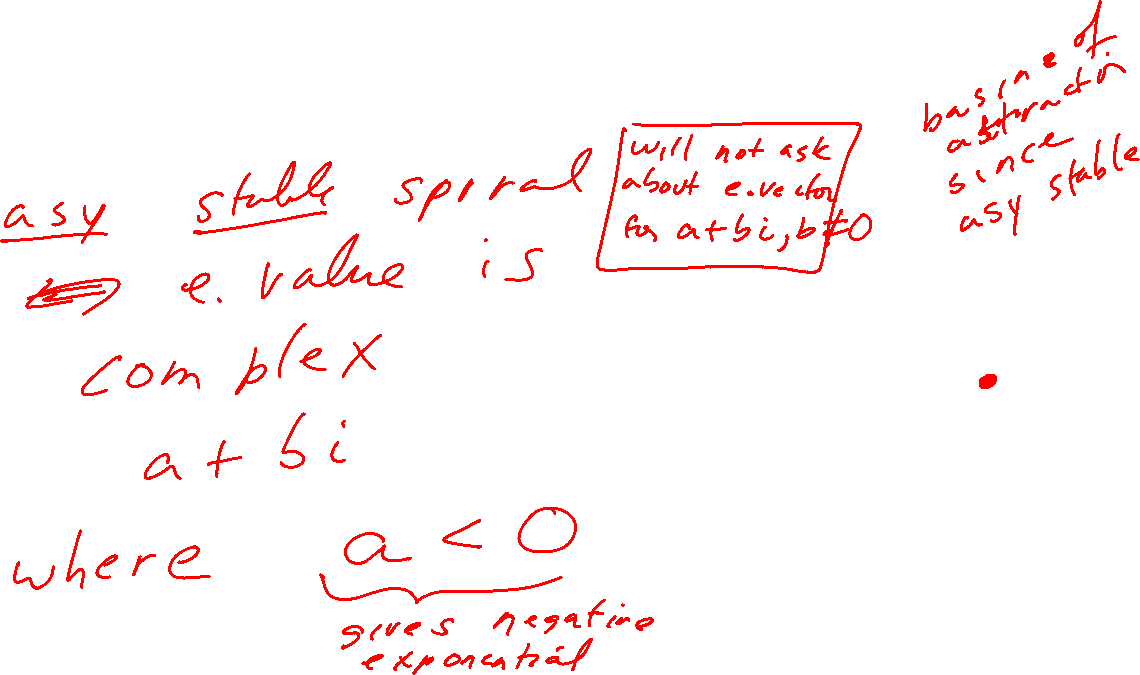 asy stable spiral
e. value is
complex
a + bi
where a < 0
gives negative
exponential
will not ask
about e.vector
for a+bi, b≠0
basin of
attraction
since
asy stable